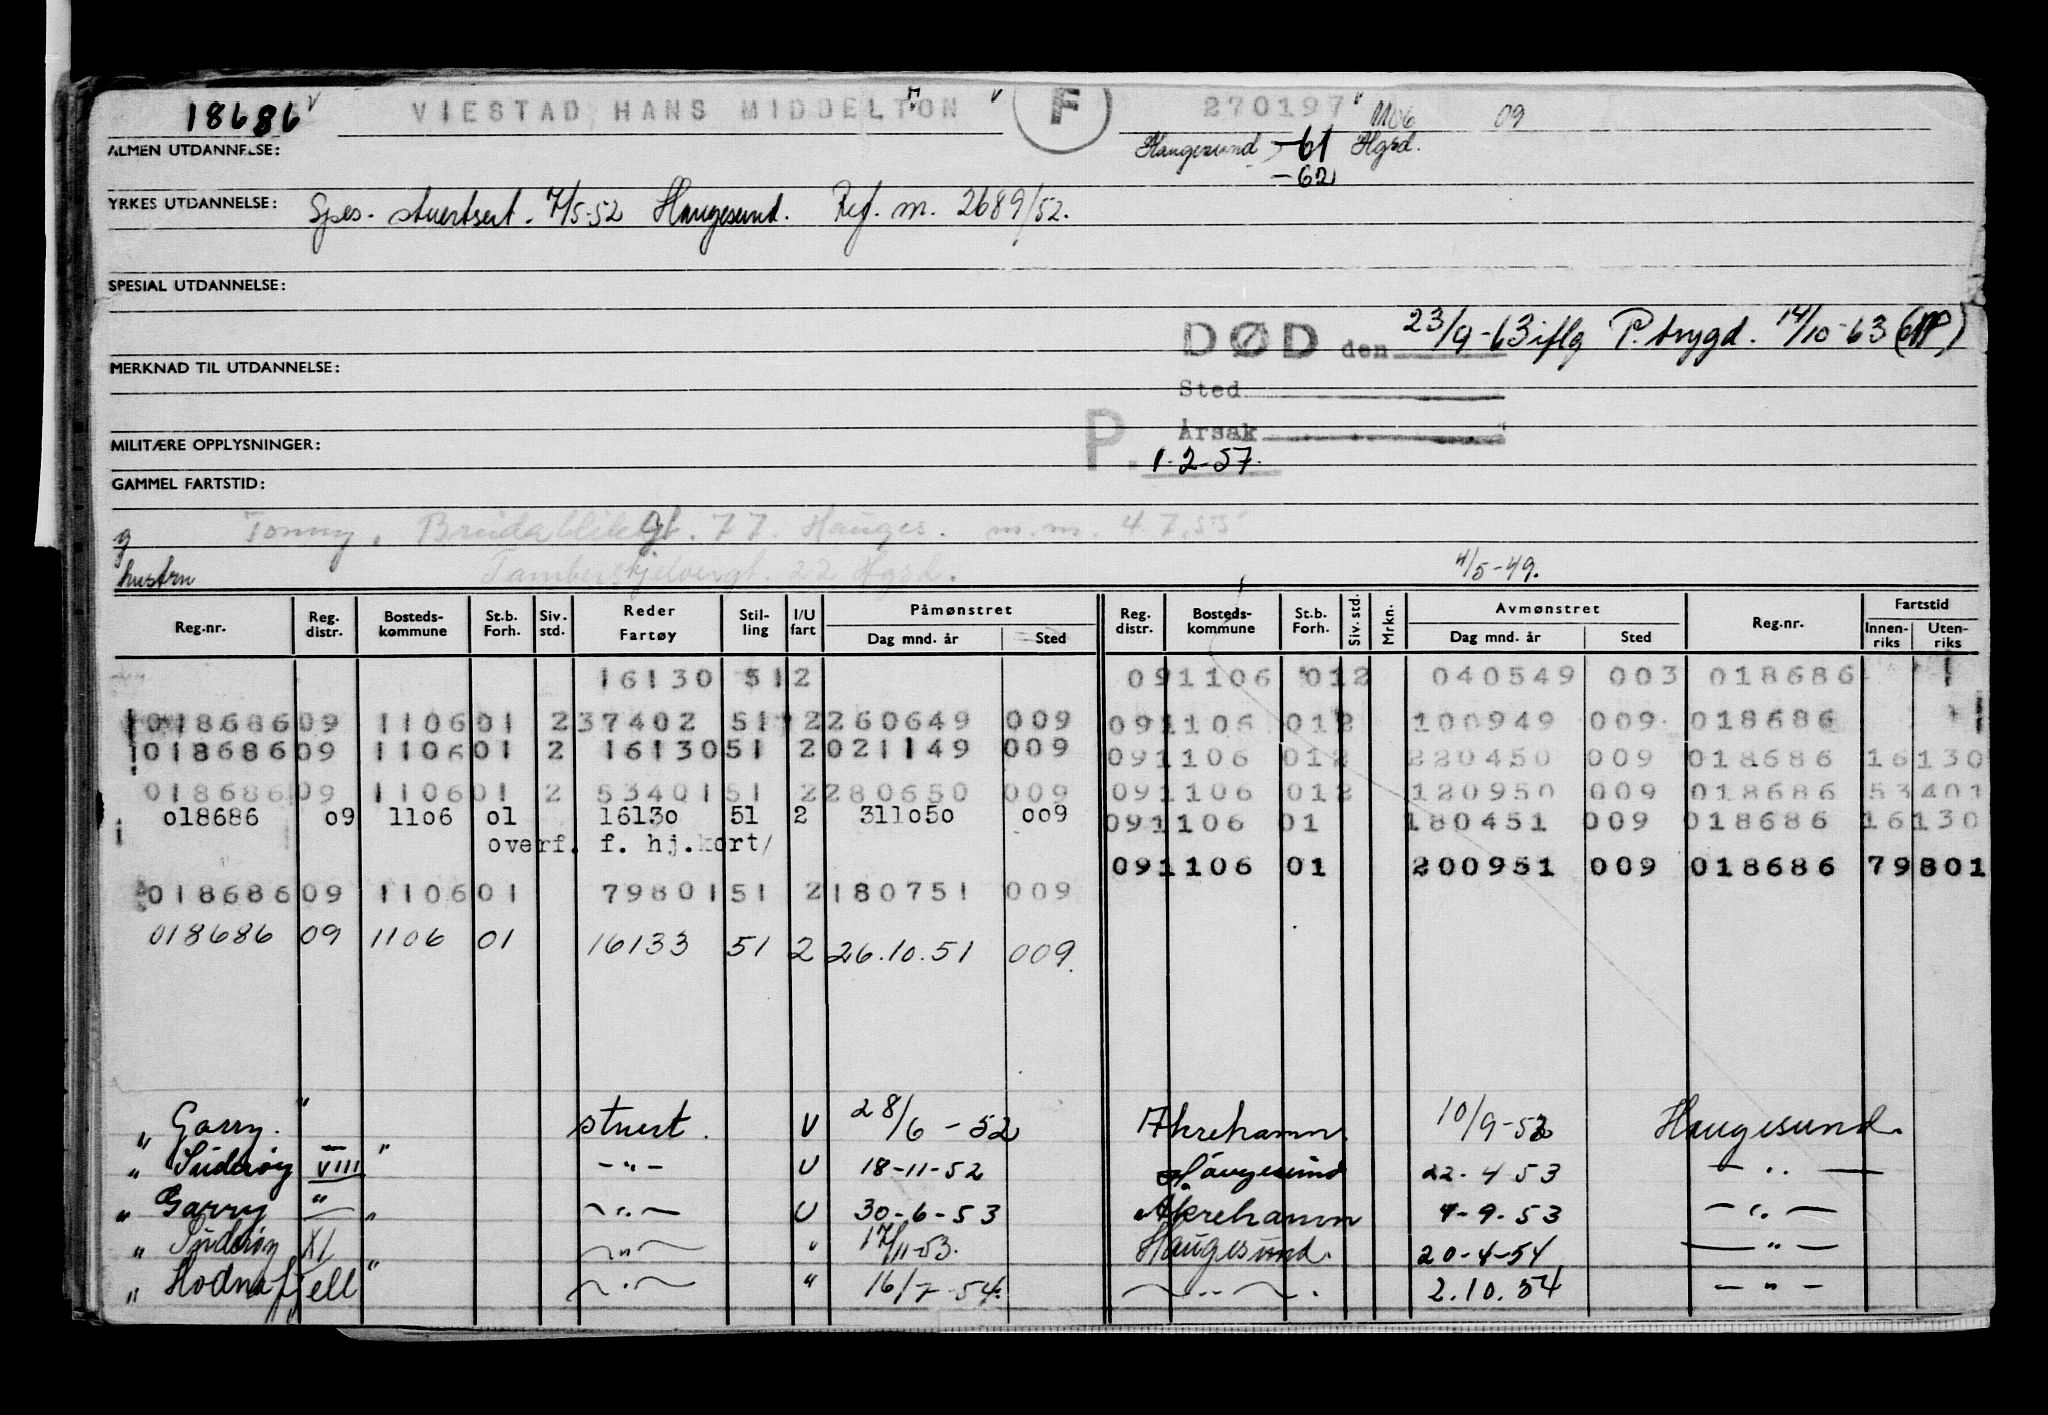 18686 VIESTAD HANS MIDDELTON F 270197 1106 09
ALMEN UTDANNELSE: Haugesund -61 Hgsd.
-62
YRKES UTDANNELSE: Spes. stuertsert. 7/5-52 Haugesund. Ref. m. 2689/52.
SPESIAL UTDANNELSE:
DØD den 23/9-63 iflg P.trygd. 14/10-63
MERKNAD TIL UTDANNELSE:
Sted
Årsak
MILITÆRE OPPLYSNINGER: P. 1-2-57.
GAMMEL FARTSTID:
g Tonny, Breidablikgt. 77. Hauges. m.m. 4.7.55
hustru 22 Hgsd. 4/5-49.
Reg.nr. Reg. distr. Bosteds-kommune St.b. Forh. Siv. std. Reder Fartøy Stil-ling I/U fart Påmønstret Dag mnd. år Sted Reg. distr. Bosteds-kommune St.b. Forh. Siv. std. Mrkn. Avmønstret Dag mnd. år Sted Reg.nr. Fartstid Innen-riks Uten-riks
16130 512 091106 012 040549 003 018686
018686 09 1106 01 2 37402 51 2 260649 009 091106 012 100949 009 018686
018686 09 1106 01 2 16130 51 2 021149 009 091106 012 220450 009 018686 16130
018686 09 1106 01 2 53401 51 2 280650 009 091106 012 120950 009 018686 53401
018686 09 1106 01 16130 51 2 311050 009 091106 01 180451 009 018686 16130
overf. f. hj.kort/
091106 01 200951 009 018686 79801
018686 09 1106 01 79801 51 2 180751 009
018686 09 1106 01 16133 51 2 26.10.51 009.
" Garry. " stuert. U 28/6-52 Åkrehamn. 10/9-52 Haugesund.
" Suderøy VIII " -"- U 18-11-52 Haugesund 22-4 53 - " -
" Garry " " -"- U 30-6-53 Åkrehamn 4-9-53 - " -
" Suderøy XI -"- " 17/11-53. Haugesund. 20-4-54 - " -
" Hodnafjell " -"- " 16/7-54. - " - 2.10.54 - " -